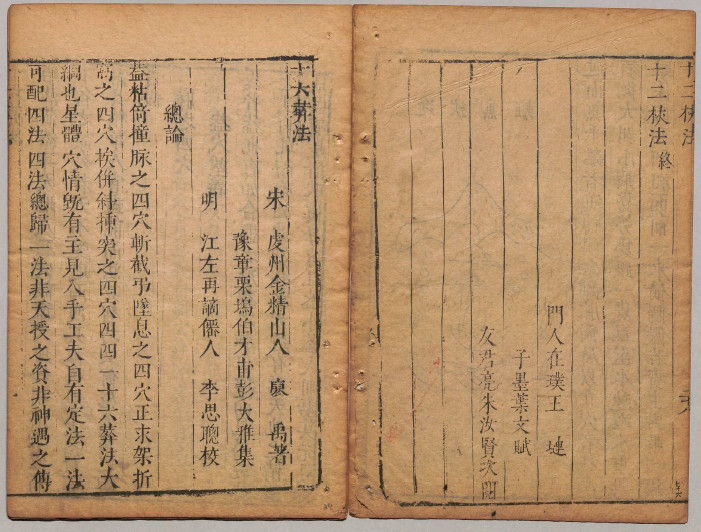 十二杖法
十二杖法 終
門人在璞王 璉
子墨葉文賦
友君亮朱汝賢次
十六葬法
宋 虔州金精山人 廖 禹著
豫章栗塢伯才甫彭大雅集
明 江左再謫僊人 李思聰校
總論
蓋粘倚撞脉之四穴斬截弔墜息之四穴正求架折
窩之四穴挨併斜揷突之四穴四四一十六葬法大
綱也星體穴情旣有主見入手工夫自有定法一法
可配四法四法總歸一法非天授之資非神遇之傳